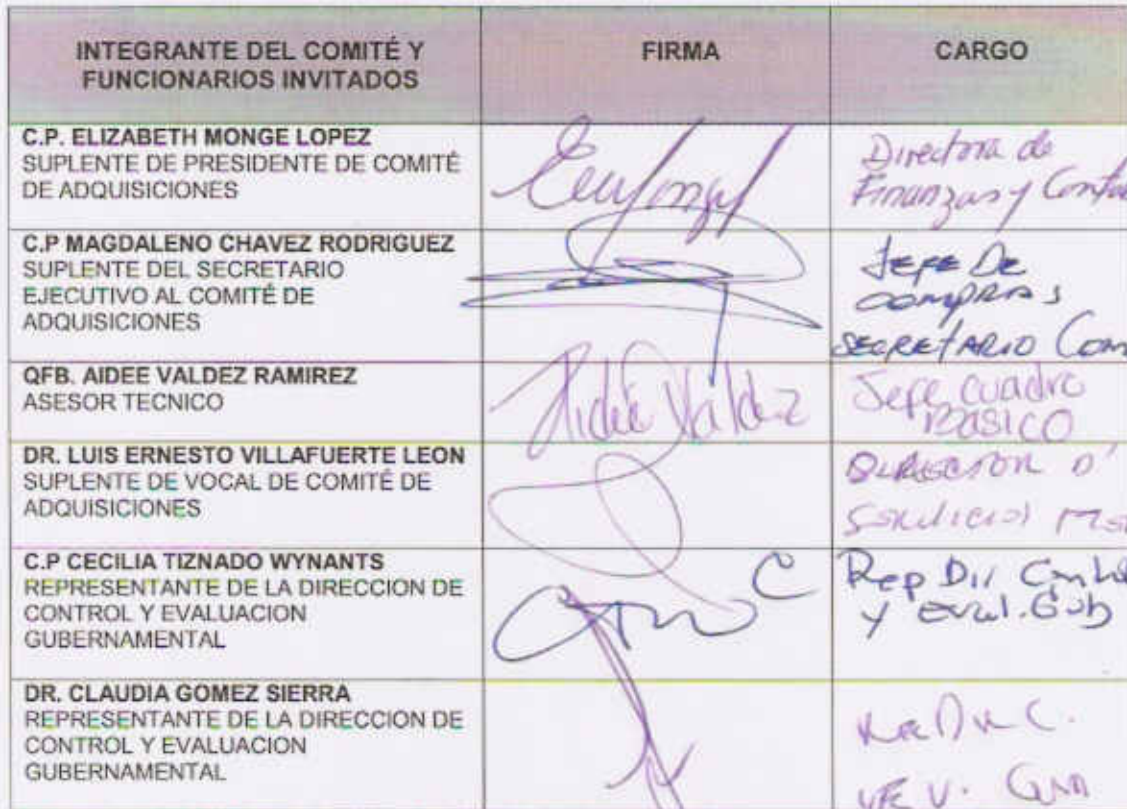 INTEGRANTE DEL COMITÉ Y
FUNCIONARIOS INVITADOS
FIRMA
CARGO
C.P. ELIZABETH MONGE LOPEZ
SUPLENTE DE PRESIDENTE DE COMITÉ
DE ADQUISICIONES
Directora de
Finanzas y
C.P MAGDALENO CHAVEZ RODRIGUEZ
SUPLENTE DEL SECRETARIO
EJECUTIVO AL COMITÉ DE
ADQUISICIONES
Jefe De
compras
SECRETARIO Com
QFB. AIDEE VALDEZ RAMIREZ
ASESOR TECNICO
Aidée Valdez
Jefe cuadro
Basico
DR. LUIS ERNESTO VILLAFUERTE LEON
SUPLENTE DE VOCAL DE COMITÉ DE
ADQUISICIONES
C.P CECILIA TIZNADO WYNANTS
REPRESENTANTE DE LA DIRECCION DE
CONTROL Y EVALUACION
GUBERNAMENTAL
Rep Dir
y eval. Gub
DR. CLAUDIA GOMEZ SIERRA
REPRESENTANTE DE LA DIRECCION DE
CONTROL Y EVALUACION
GUBERNAMENTAL